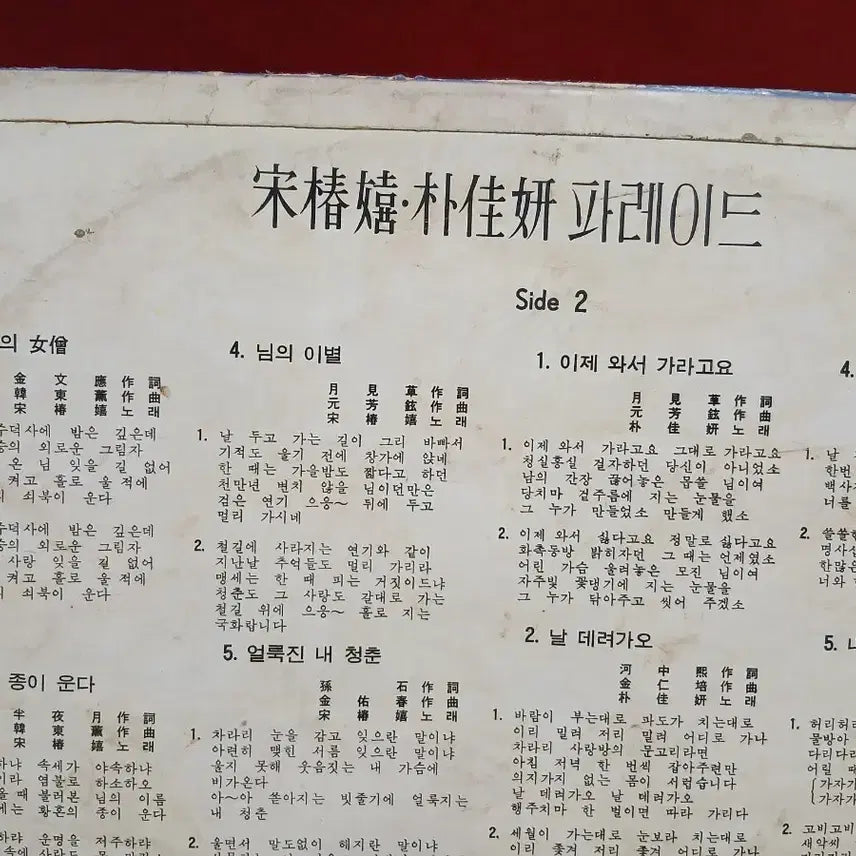 宋椿嬉·朴佳妍 파레이드
의 女僧
金文應 作詞
韓東薰 作曲
宋椿嬉 노래
수덕사에 밤은 깊은데
승의 외로운 그림자
온 님 잊을 길 없어
켜고 홀로 울 적에
의 쇠북이 운다
수덕사에 밤은 깊은데
승의 외로운 그림자
사랑 잊을 길 없어
켜고 홀로 울 적에
쇠북이 운다
종이 운다
半夜月 作詞
韓東薰 作曲
宋椿嬉 노래
하냐 속세가 야속하냐
이라 염불로 하소하오
울 때 불러본 님의 이름
에는 황혼의 종이 운다
하랴 운명을 저주하랴
4. 님의 이별
月見草 作詞
元芳鉉 作曲
宋椿嬉 노래
1. 날 두고 가는 길이 그리 바빠서
기적도 울기 전에 창가에 앉네
한 때는 가을밤도 짧다고 하던
천만년 변치 않을 님이던만은
검은 연기 으응~ 뒤에 두고
멀리 가시네
2. 철길에 사라지는 연기와 같이
지난날 추억들도 멀리 가리라
맹세는 한 때 피는 거짓이드냐
청춘도 그 사랑도 갈대로 가는
철길 위에 으응~ 홀로 지는
국화랍니다
5. 얼룩진 내 청춘
孫石 作詞
金佑春 作曲
宋椿嬉 노래
1. 차라리 눈을 감고 잊으란 말이냐
아련히 맺힌 서름 잊으란 말이냐
울지 못해 웃음짓는 내 가슴에
비가온다
아~아 쏟아지는 빗줄기에 얼룩지는
내 청춘
2. 울면서 말도없이 헤지란 말이냐
Side 2
1. 이제 와서 가라고요
月見草 作詞
元芳鉉 作曲
朴佳妍 노래
1. 이제 와서 가라고요 그대로 가라고요
청실홍실 걸자하던 당신이 아니었소
남의 간장 끊어놓은 몹쓸 님이여
당치마 겉주름에 지는 눈물을
그 누가 만들었소 만들게 했소
2. 이제 와서 싫다고요 정말로 싫다고요
화촉동방 밝히자던 그 때는 언제였소
어린 가슴 울려놓은 모진 님이여
자주빛 꽃댕기에 지는 눈물을
그 누가 닦아주고 씻어 주겠소
2. 날 데려가오
河中熙 作詞
金仁培 作曲
朴佳妍 노래
1. 바람이 부는대로 파도가 치는대로
이리 밀려 저리 밀려 어디로 가나
차라리 사랑방의 문고리라면
아침 저녁 한 번씩 잡아주련만
의지가지 없는 몸이 서럽습니다
날 데려가오 날 데려가오
행주치마 한 벌이면 따라 가리다
2. 세월이 가는대로 눈보라 치는대로
이리 쫓겨 저리 쫓겨 어디로 가나
4.
1. 날
한번
백사
너를
2. 쓸쓸한
명사십
한많은
너와
5. 나
1. 허리허리
물방아
다리다리
어릴 때
(가자가
(가자가
2. 고비고비
새악씨